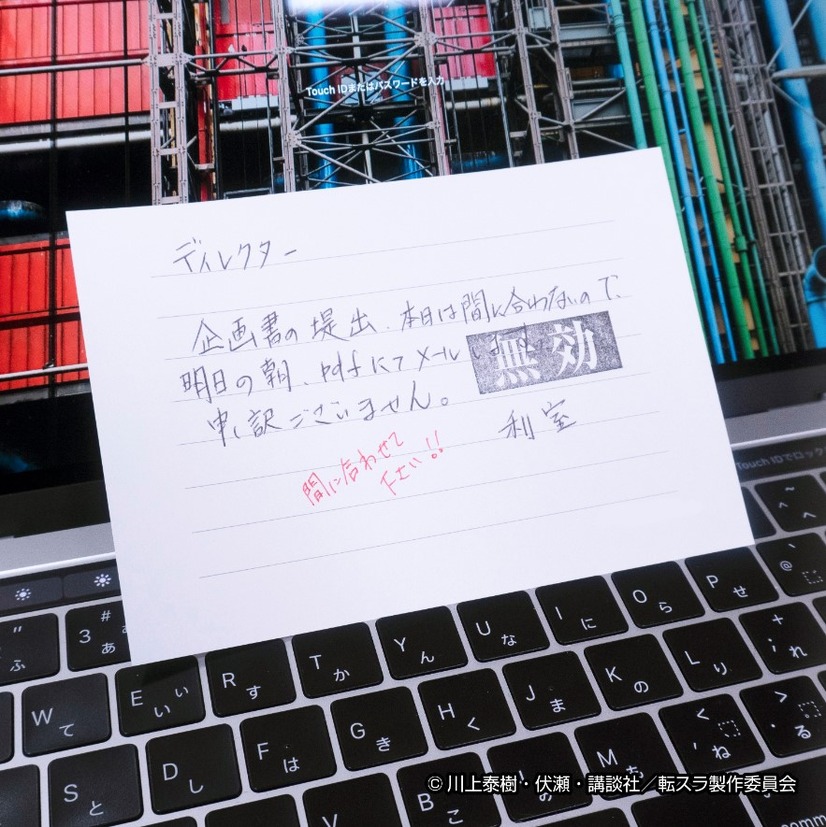 Touch IDまたはパスワードを入力
ディレクター
企画書の提出、本日は間に合わないので、
明日の朝、pdfにてメールします。
無効
申し訳ございません。
利室
間に合わせて
下さい!!
Touch IDでロック
# 3 あ
" ふ
W て
E い ぃ
R す
T か
Y ん
U な
I に
O ら
P せ
S と
D し
F は
G き
H く
J ま
K の
L り
+ れ
V
B こ
M も
< ね
> る
© 川上泰樹・伏瀬・講談社／転スラ製作委員会